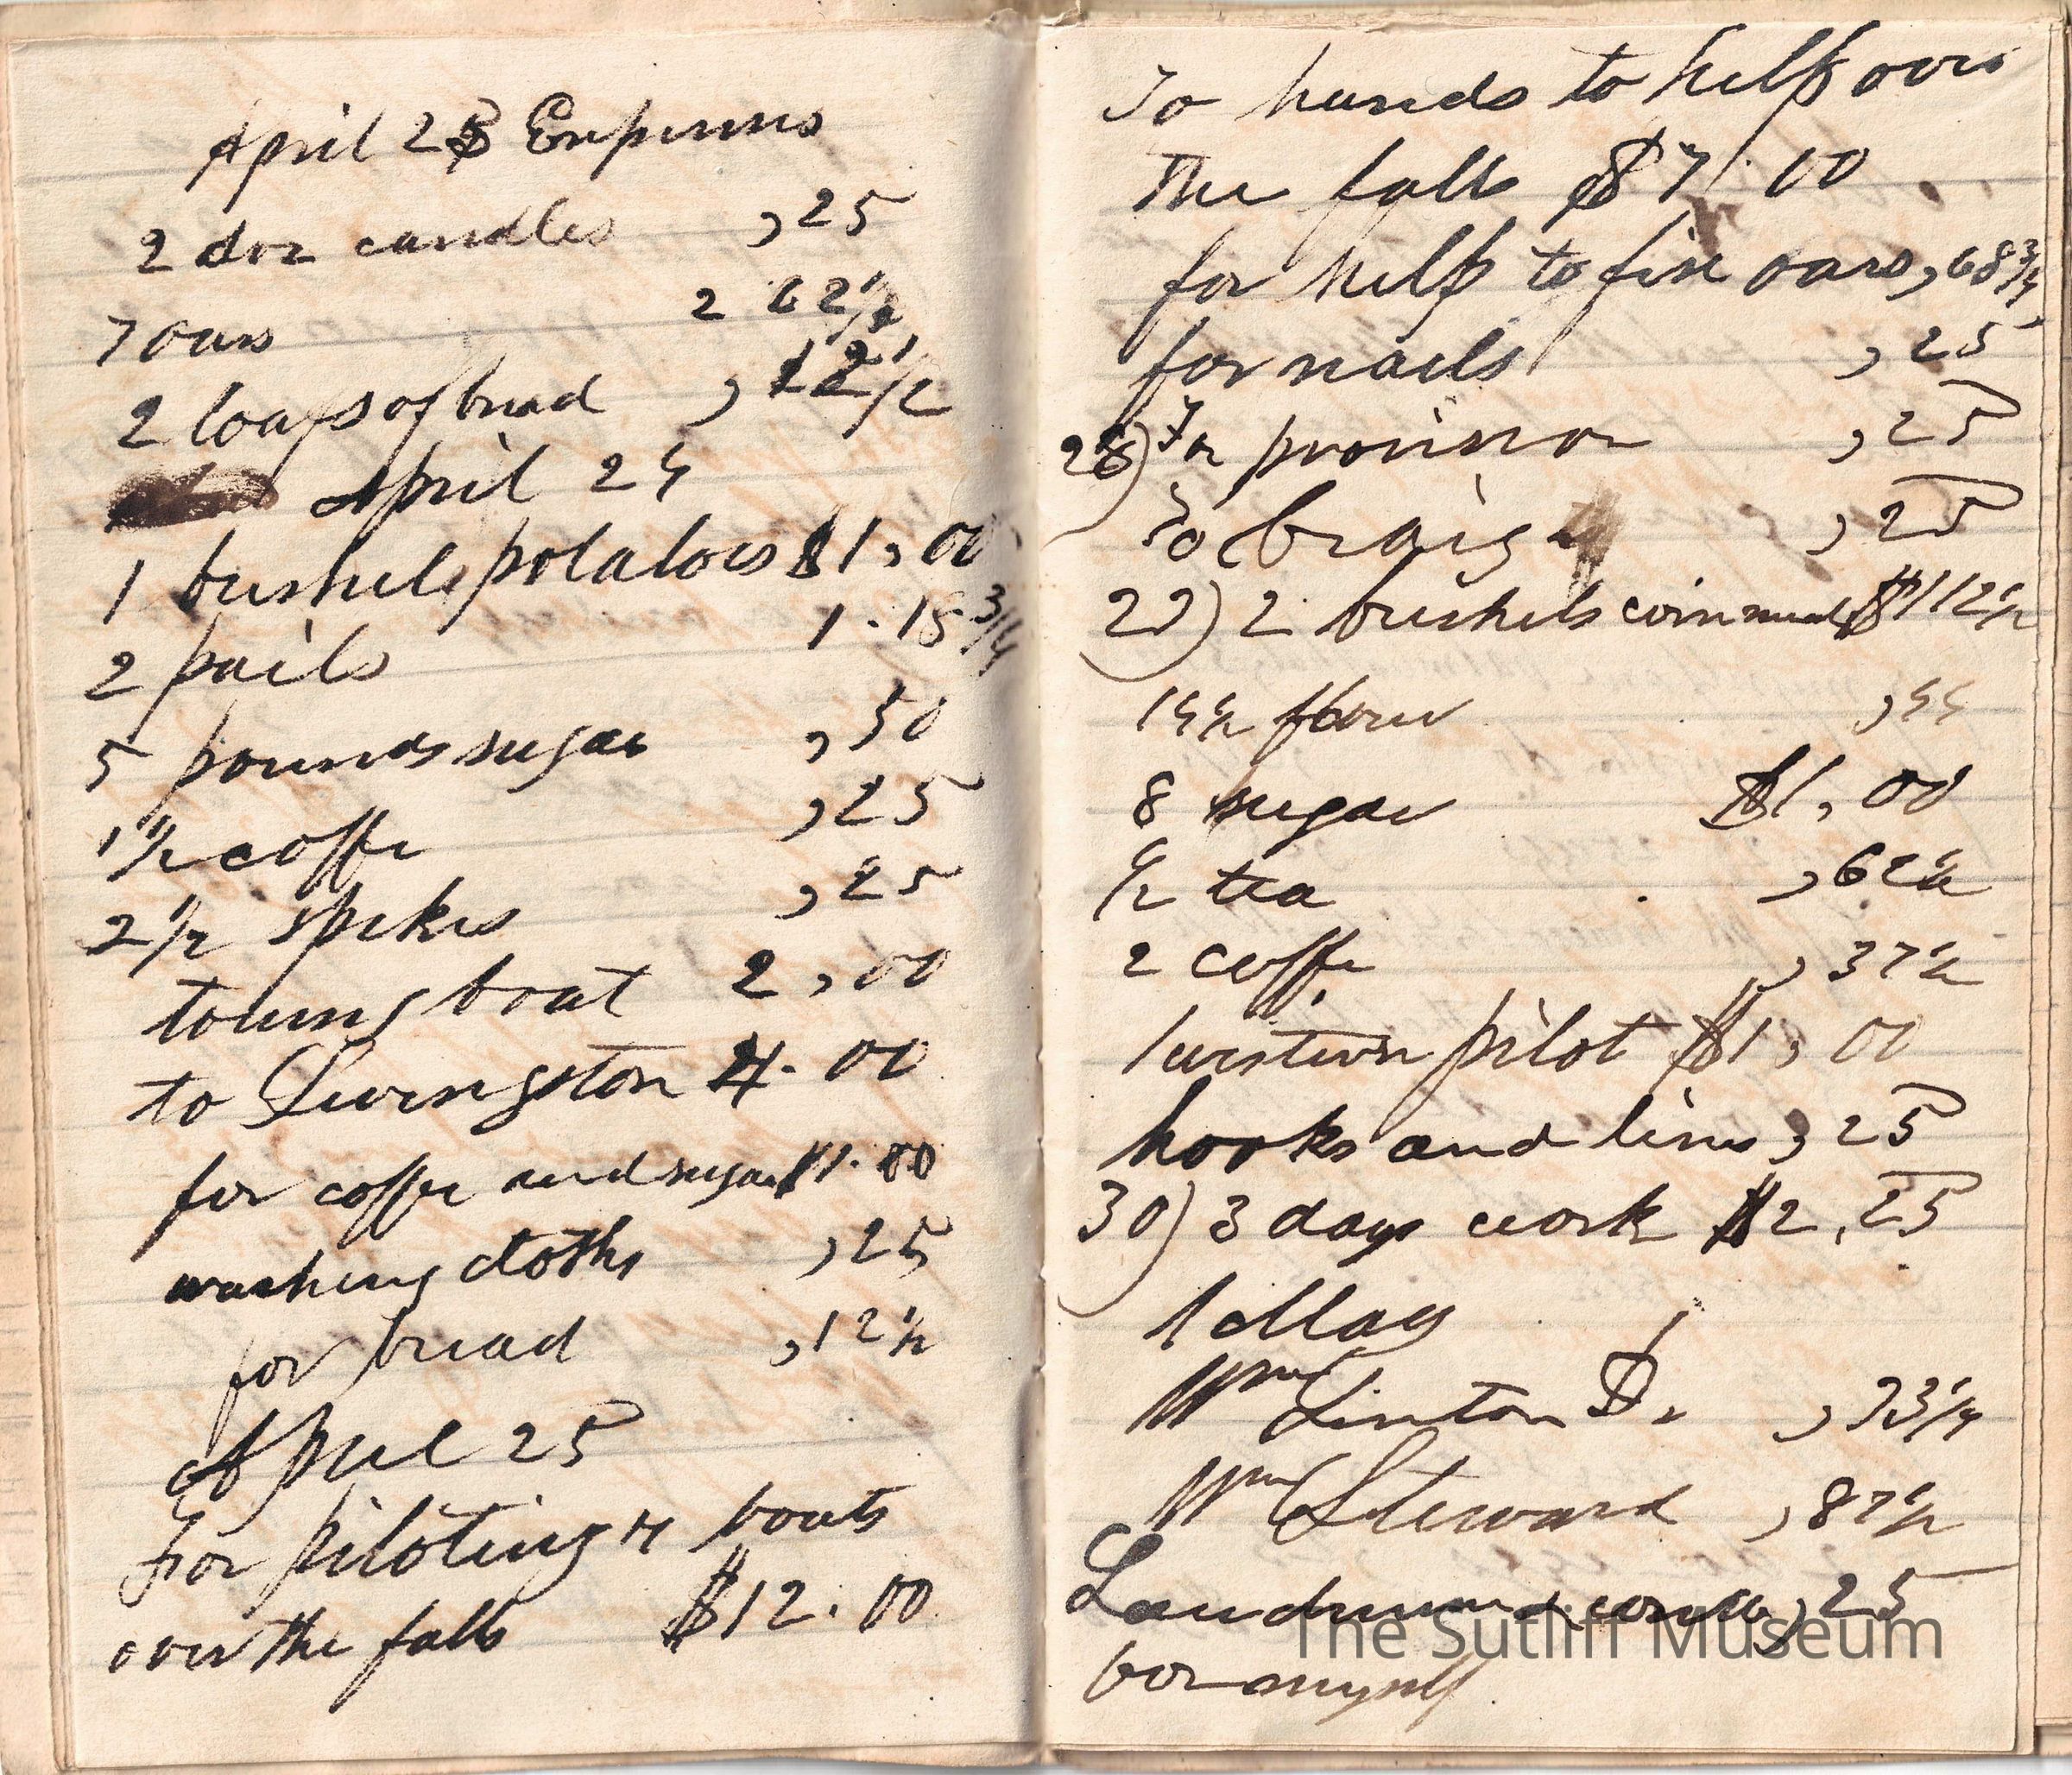 April 23 Expenses
2 doz candles ,25
7 oars 2 62 1/2
2 loafs of bread , 12 1/2
April 24
1 bushels potatoes $1,00
2 pails 1.18 3/4
5 pounds sugar ,50
1 1/2 coffe ,25
2 1/2 spikes ,25
towing boat 2,00
to Livingston 4.00
for coffe and sugar $1.00
washing cloths ,25
for bread ,12 1/2
April 25
For piloting 4 boats
over the falls $12.00
To hands to help over
The falls $7.00
for help to fix oars ,68 3/4
for nails ,25
28) For provision ,25
To ,25
29) 2 bushels corn meal $1 12 1/2
14 1/2 flour ,44
8 sugar $1,00
1/2 tea ,62 1/2
2 coffe ,37 1/2
1 western pilot $1,00
hooks and lines ,25
30) 3 days work $2,25
1 May
Wm Linton Dr ,33 1/4
Wm Steward ,87 1/2
,25
for myself
The Sutliff Museum